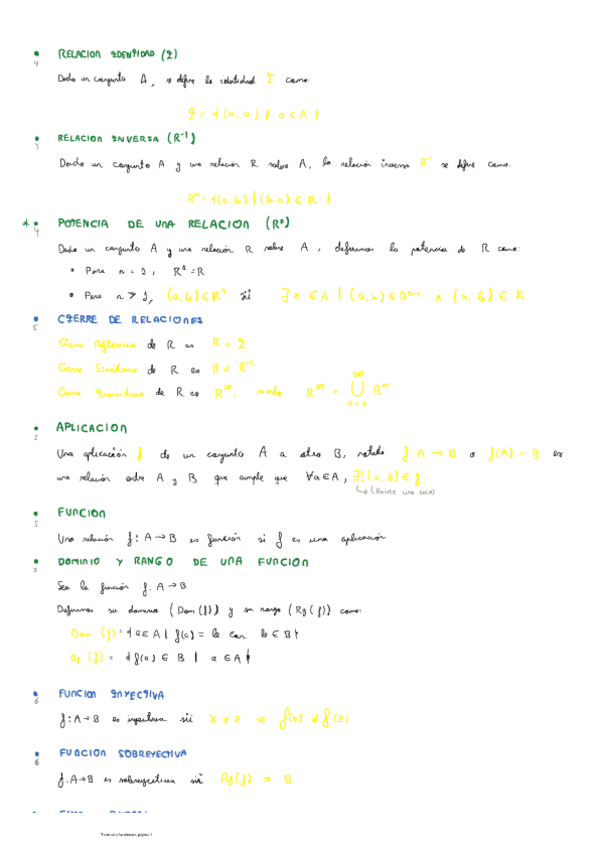 • RELACION IDENTIDAD (I)
4
Dado un conjunto A, se define la identidad I como:
I = { (a,a) / a ∈ A }
• RELACION INVERSA (R⁻¹)
4
Dado un conjunto A y una relación R sobre A, la relación inversa R⁻¹ se define como:
R⁻¹ = {(a,b) | (b,a) ∈ R }
• POTENCIA DE UNA RELACION (Rⁿ)
4
Dado un conjunto A y una relación R sobre A, definimos la potencia de R como:
• Para n = 1, R¹ = R
• Para n > 1, (a,b) ∈ Rⁿ sii ∃ x ∈ A / (a,x) ∈ Rⁿ⁻¹ ∧ (x,b) ∈ R
• CIERRE DE RELACIONES
5
Cierre Reflexivo de R es R ∪ I
Cierre Simétrico de R es R ∪ R⁻¹
Cierre Transitivo de R es R^∞, siendo R^∞ = ∪ Rⁿ
• APLICACION
5
Una aplicación f de un conjunto A a otro B, notada f: A → B o f(A) = B es
una relación entre A y B que cumple que ∀a∈A, ∃!(a,b) ∈ f.
↳ (Existe uno solo)
• FUNCION
5
Una relación f: A → B es función si f es una aplicación
• DOMINIO Y RANGO DE UNA FUNCION
Sea la función f: A → B
Definimos su dominio (Dom(f)) y su rango (Rg(f)) como:
Dom (f) = { a∈A | f(a) = b con b ∈ B }
Rg (f) = { f(a) ∈ B | a ∈ A }
• FUNCION INYECTIVA
6
f: A → B es inyectiva sii
• FUNCION SOBREYECTIVA
6
f: A → B es sobreyectiva sii Rg(f) = B